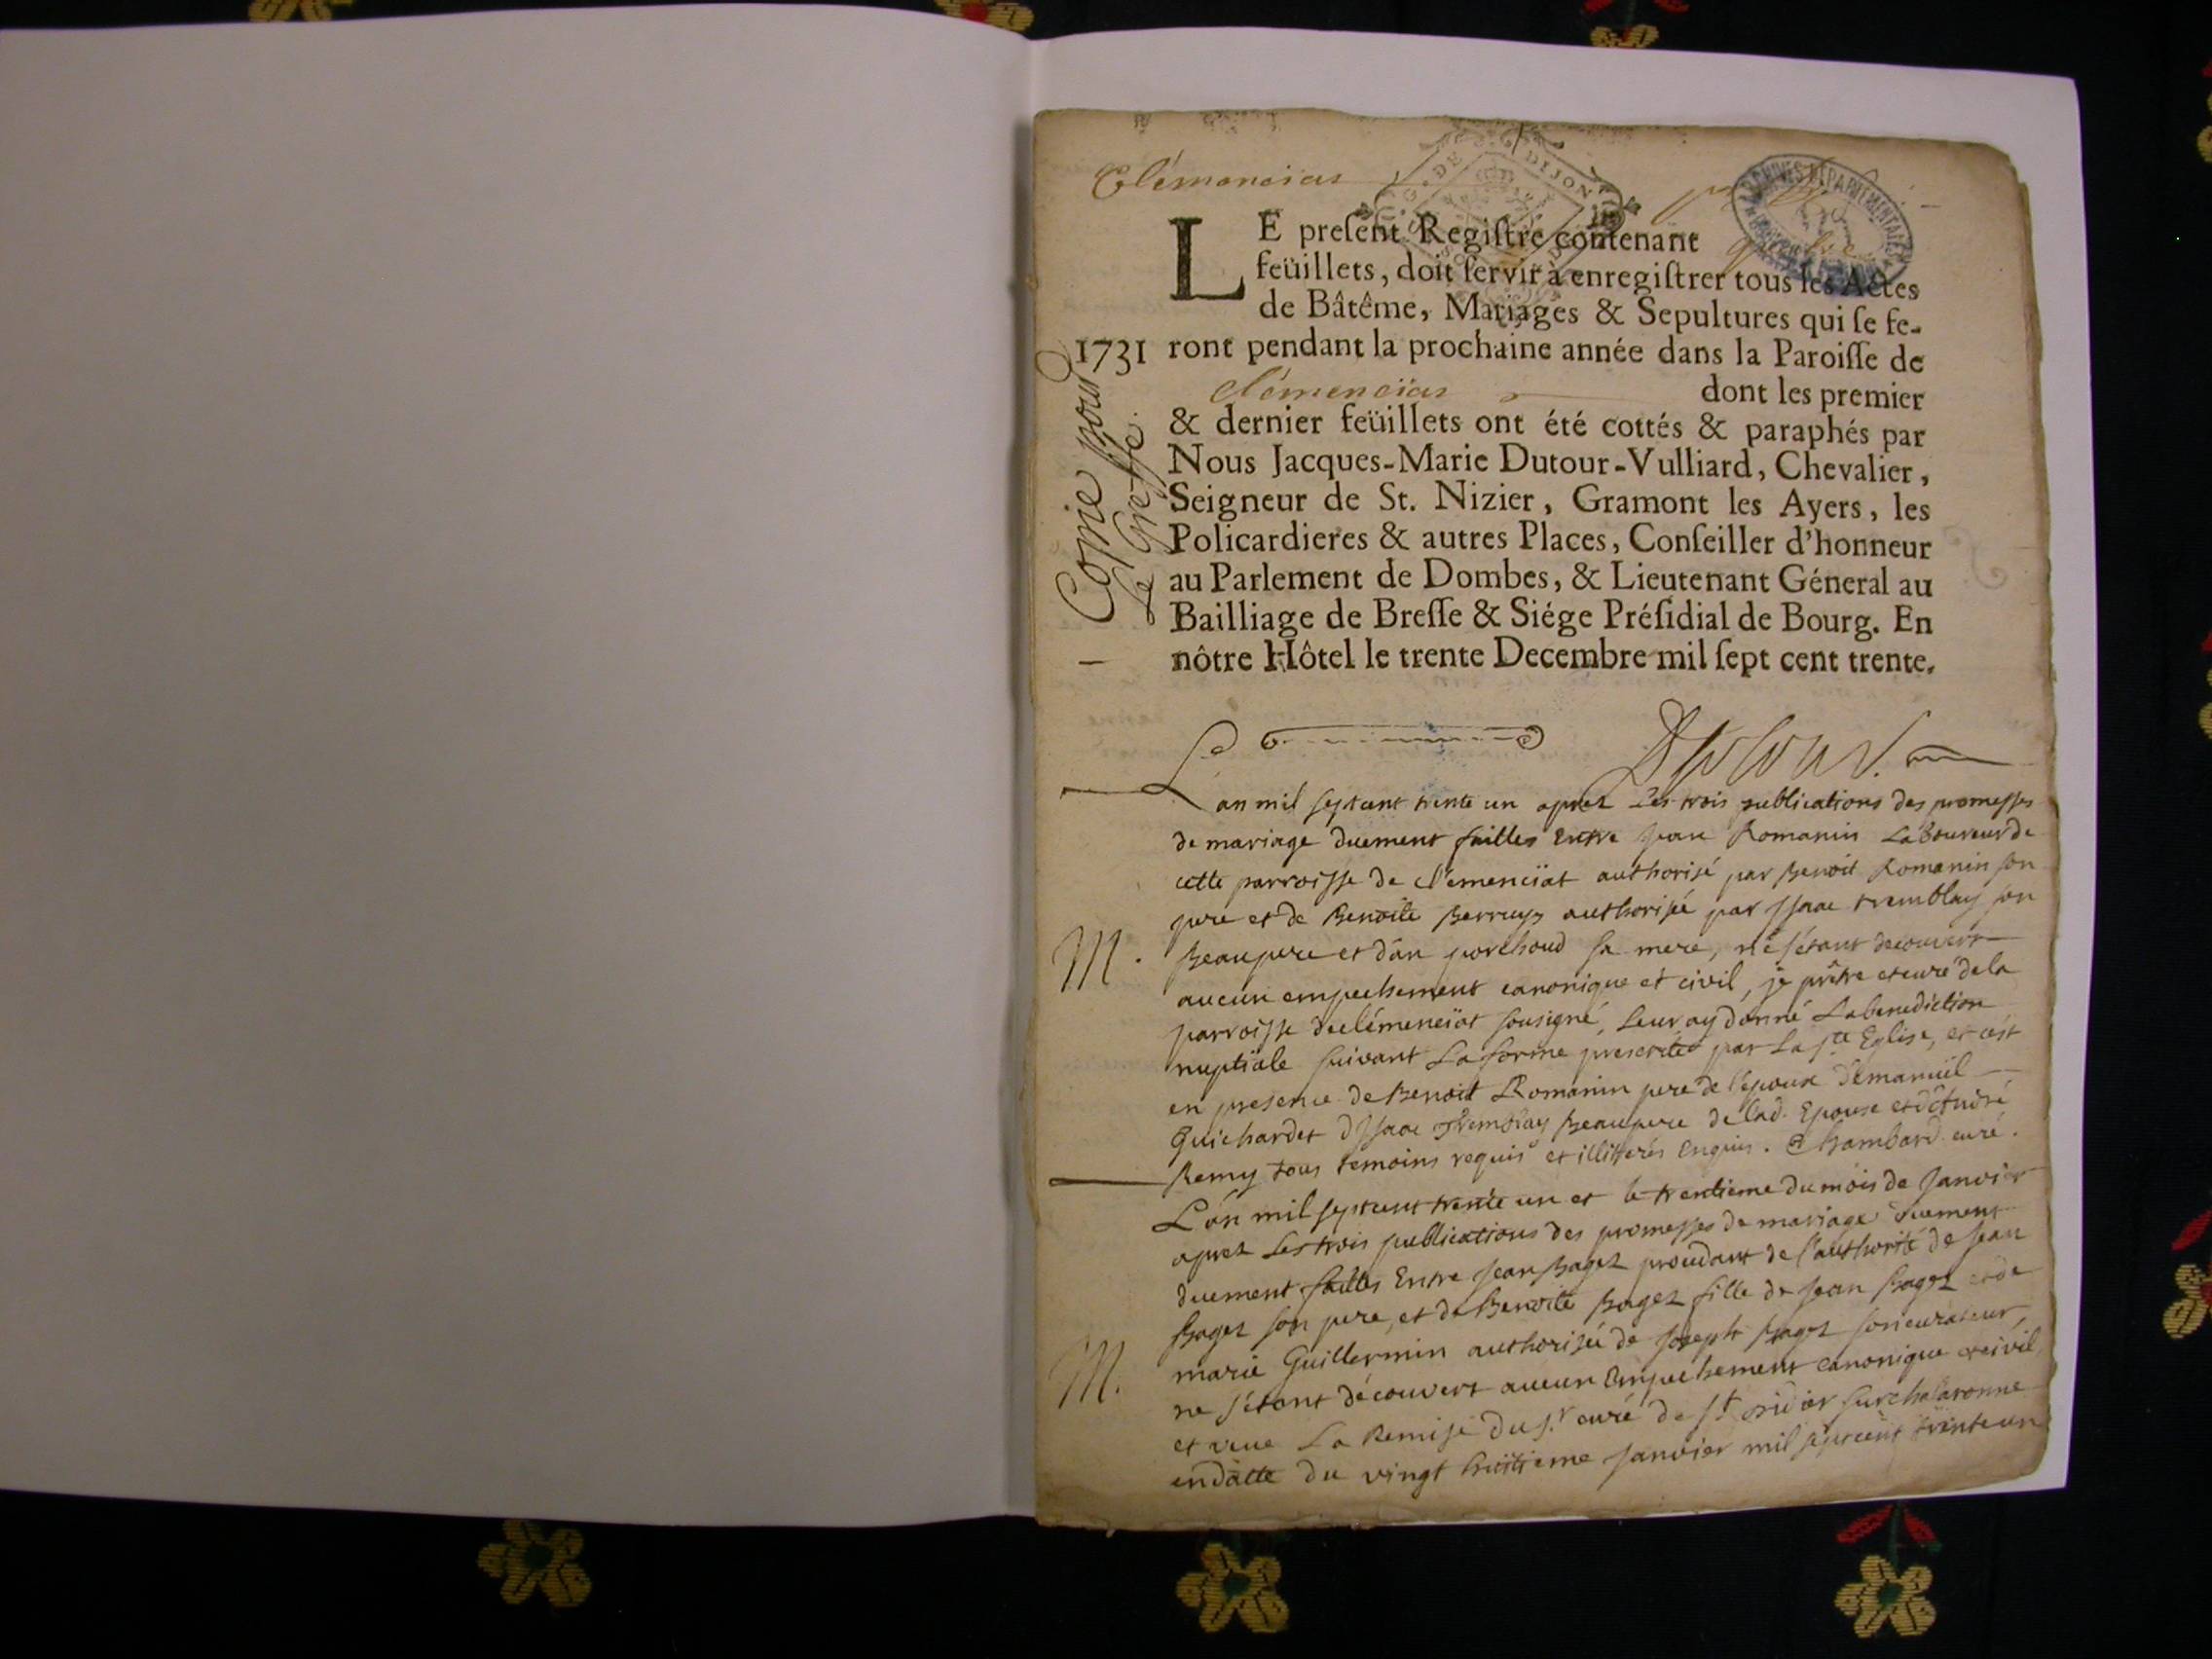 Clémencias
G. DE DIJON
ARCHIVES DEPARTEMENTALES
LE preſent Regiſtre contenant quatre
feüillets, doit ſervir à enregiſtrer tous les Actes
de Bâtême, Mariages & Sepultures qui ſe fe-
1731 ront pendant la prochaine année dans la Paroiſſe de
Clémencias dont les premier
& dernier feüillets ont été cottés & paraphés par
Nous Jacques-Marie Dutour-Vulliard, Chevalier,
Seigneur de St. Nizier, Gramont les Ayers, les
Policardieres & autres Places, Conſeiller d'honneur
au Parlement de Dombes, & Lieutenant Géneral au
Bailliage de Breſſe & Siége Préſidial de Bourg. En
nôtre Hôtel le trente Decembre mil ſept cent trente.
Copie pour
le Greffe.
L'an mil septcent trente un aprez Les trois publications des promesses
de mariage duement faittes Entre Romanin Laboureur de
cette parroisse de Clémenciat authorisé par Benoit Romanin son
pere et de Benoite Berruyz authorisée par Isaac tremblay son
M. Beaupere et d'an porchoud sa mere, ne s'étant decouvert
aucun empechement canonique et civil, je prêtre et curé de la
parroisse de Clémenciat sousigné, Leur ay donné La benediction
nuptiale suivant La forme prescritte par La ste Eglise, et c'est
en presence de Benoit Romanin pere de l'epoux d'Emanuël
Guichardet d'Isaac Tremblay Beaupere de lad. Epouse et d'André
Remy tous temoins requis et illitterés Enquis. Chambard curé.
L'an mil septcent trente un et le trentieme du mois de Janvier
aprez Les trois publications des promesses de mariage duement
duement faittes Entre Jean Bagez procedant de l'authorité de Jean
Bagez son pere, et de Benoite Bagez fille de Jean Bagez et de
M. marie Guillermin authorisée de Joseph Bagez son curateur,
ne s'étant découvert aucun Empechement canonique et civil
et veue La Remise du Sr. curé de St Didier sur chalaronne
en datte du vingt huitieme Janvier mil septcent trente un